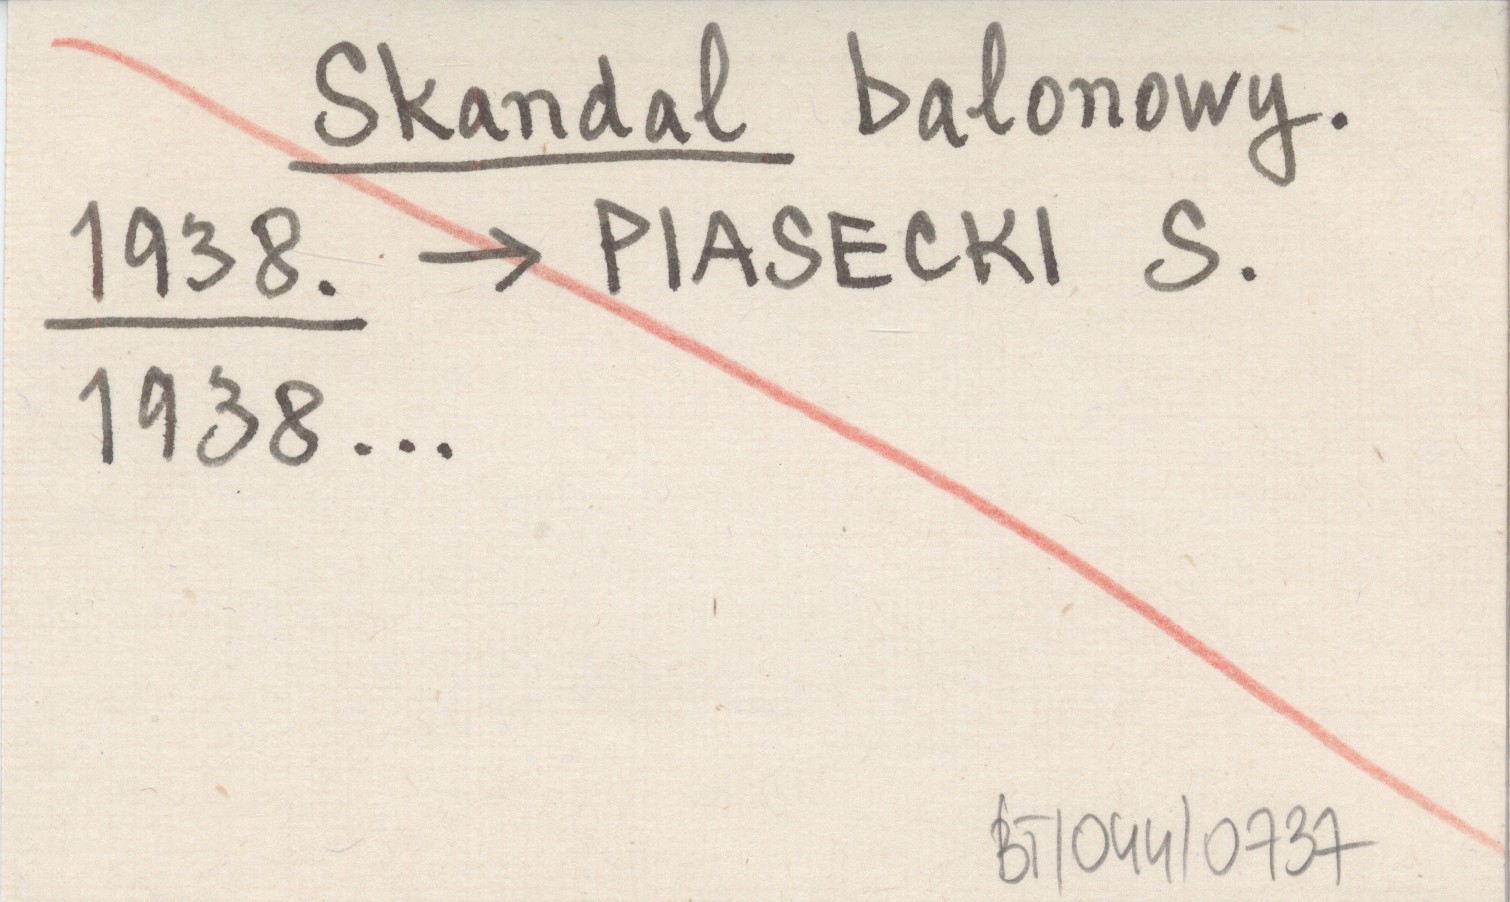 Skandal balonowy.
1938. → PIASECKI S.
1938...
BT/044/0737